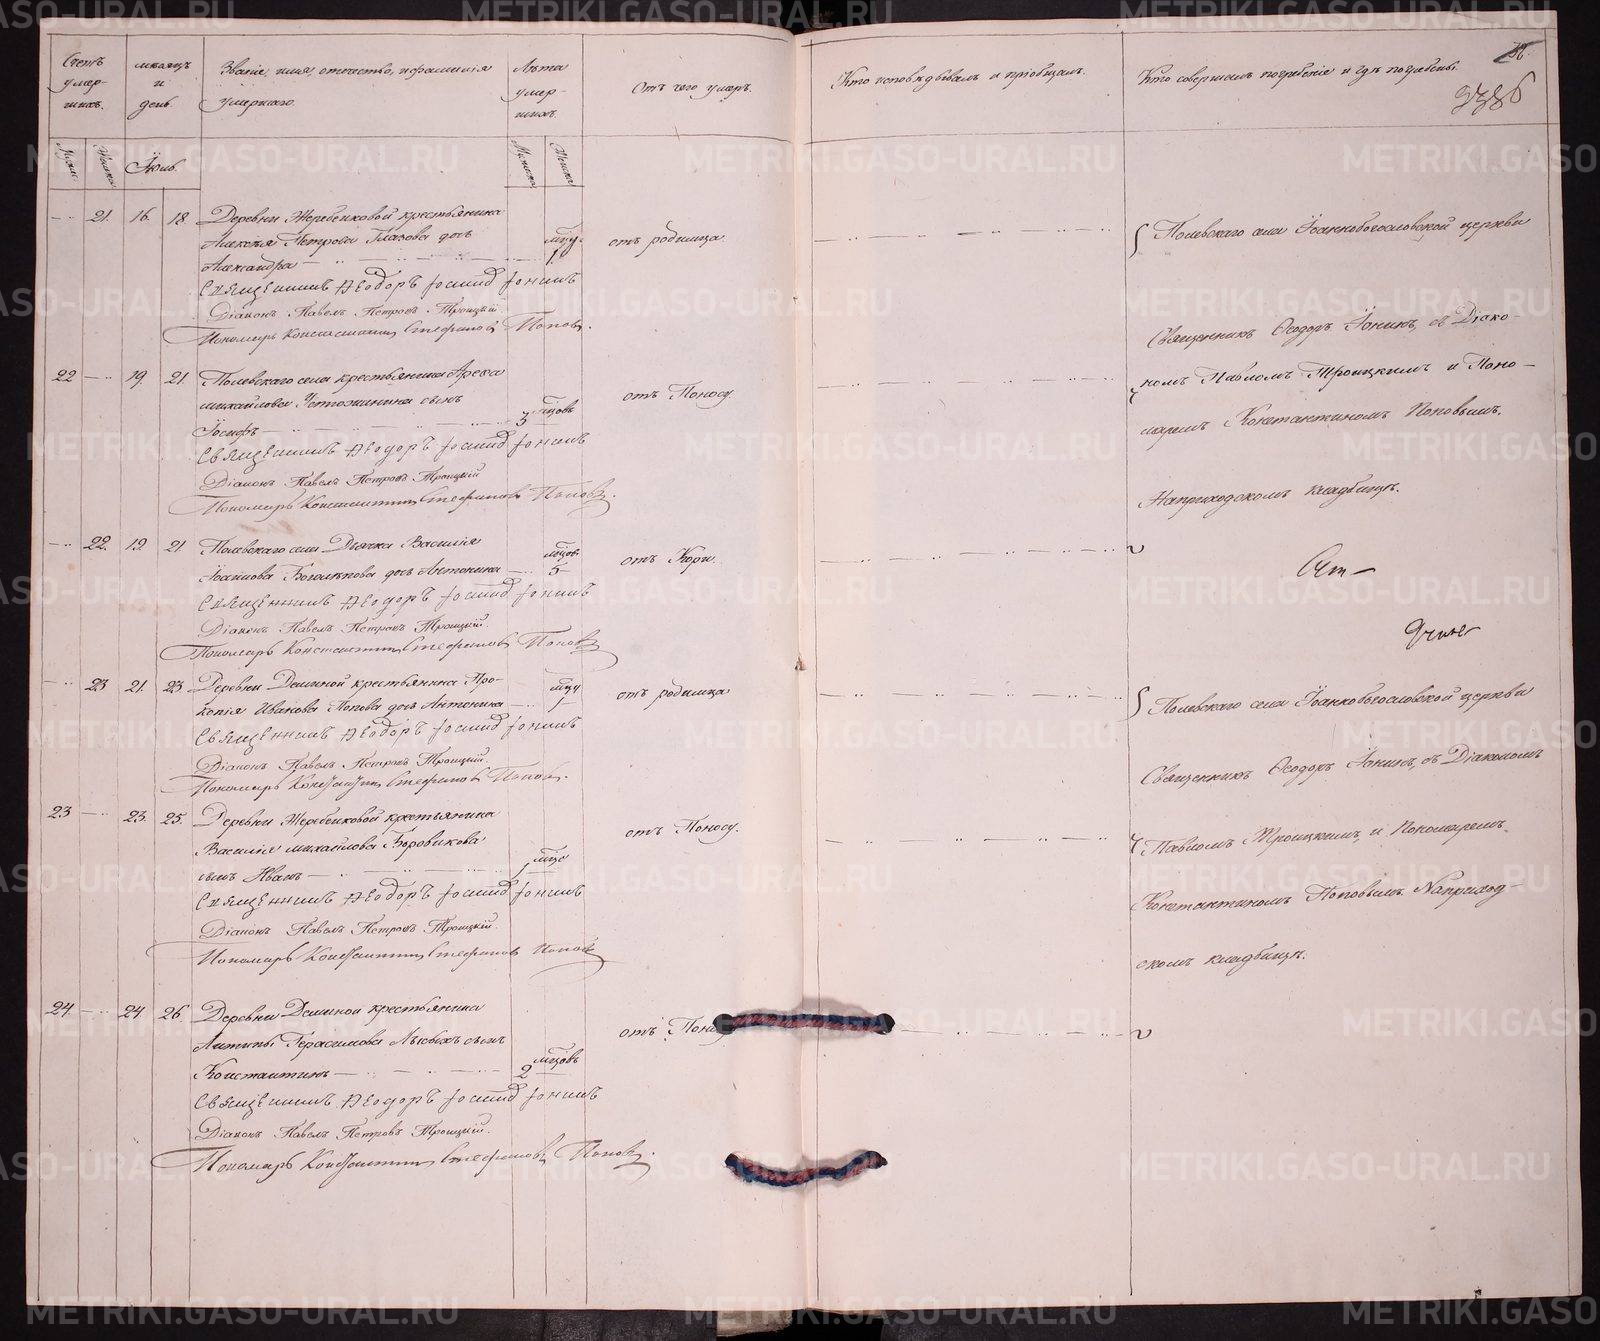 Счетъ умер-шихъ.
мѣсяцъ и день.
Званіе, имя, отчество, и фамилія умершаго.
Лѣта умер-шихъ.
Отъ чего умеръ.
Кто исповѣдывалъ и пріобщалъ.
Кто совершалъ погребеніе и гдѣ погребены.
Іюль.
21. 16. 18. Деревни Жеребенковой крестьянина
Алексѣя Петрова Глазова дочь
Александра
1
отъ родимца
Священникъ Ѳеодоръ Іонинъ
Діаконъ Павелъ Петровъ Троицкій
Пономарь Константинъ Стефановъ Поповъ.
22 19. 21. Полевскаго села крестьянина
михайлова сынъ
Іосифъ
3 мцовъ
отъ Поносу.
Священникъ Ѳеодоръ Іонинъ
Діаконъ Павелъ Петровъ Троицкій
Пономарь Константинъ Стефановъ Поповъ.
22. 19. 21 Полевскаго села Дьячка Василія
Іоаннова Боголѣпова дочь Антонина
мцов. 5
отъ Кори.
Священникъ Ѳеодоръ Іонинъ
Діаконъ Павелъ Петровъ Троицкій.
Пономарь Константинъ Стефановъ Поповъ
23 21. 23 Деревни Деминой крестьянина Про-
копія Иванова Попова дочь Антонина
1
отъ родимца
Священникъ Ѳеодоръ Іонинъ
Діаконъ Павелъ Петровъ Троицкій.
Пономарь Константинъ Стефановъ Поповъ.
23 23. 25. Деревни Жеребенковой крестьянина
Василія михайлова Боровикова
сынъ Иванъ
1
отъ Поносу.
Священникъ Ѳеодоръ Іонинъ
Діаконъ Павелъ Петровъ Троицкій.
Пономарь Константинъ Стефановъ Поповъ
24. 24. 26. Деревни Деминой крестьянина
Антипы Герасимова сынъ
Константинъ
2 мцовъ
отъ
Священникъ Ѳеодоръ Іонинъ
Діаконъ Павелъ Петровъ Троицкій.
Пономарь Константинъ Стефановъ Поповъ.
Полевскаго села Іоаннобогословской церкви
Священникъ Ѳеодоръ Іонинъ, съ Діако-
номъ Павломъ Троицкимъ и Поно-
маремъ Константиномъ Поповымъ.
На приходскомъ кладбищѣ.
Полевскаго села Іоаннобогословской церкви
Священникъ Ѳеодоръ Іонинъ, съ Діакономъ
Павломъ Троицкимъ, и Пономаремъ
Константиномъ Поповымъ На приход-
скомъ кладбищѣ.
METRIKI.GASO-URAL.RU